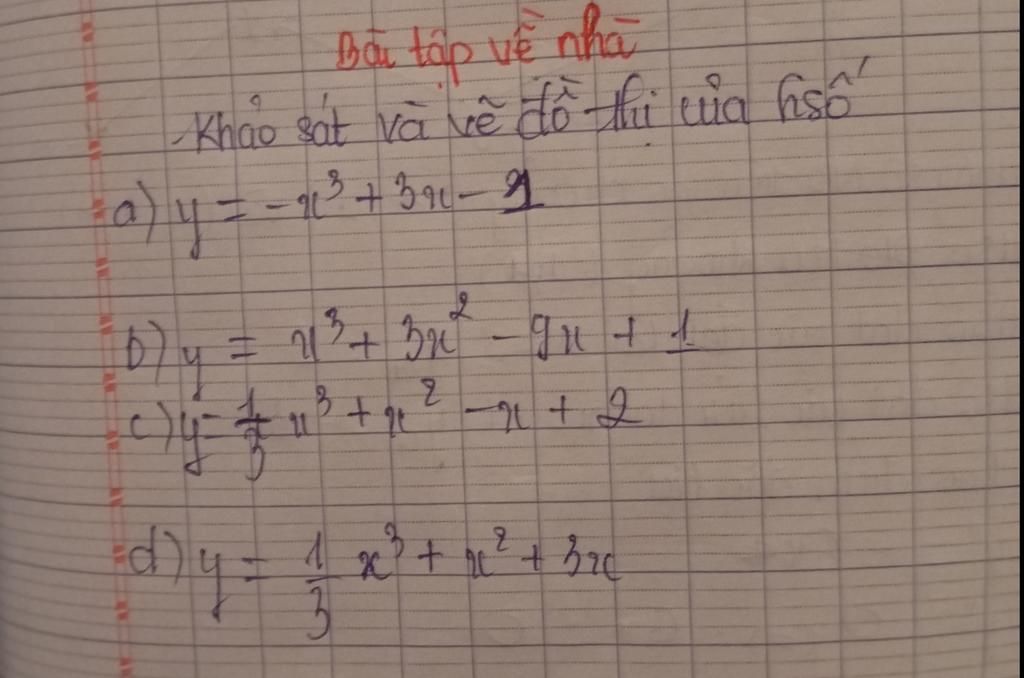 Bài tập về nhà
Khảo sát và vẽ đồ thị của hsố
a) y = -x³ + 3x - 1
b) y = x³ + 3x² - 9x + 1
c) y = 1/3 x³ + x² - x + 2
d) y = 1/3 x³ + x² + 3x